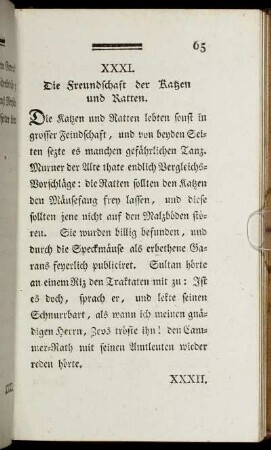 65
XXXI.
Die Freundschaft der Katzen
und Ratten.
Die Katzen und Ratten lebten sonst in
grosser Feindschaft, und von beyden Sei-
ten sezte es manchen gefährlichen Tanz.
Murner der Alte thate endlich Vergleichs-
Vorschläge: die Ratten sollten den Katzen
den Mäusefang frey lassen, und diese
sollten jene nicht auf den Malzböden stö-
ren. Sie wurden billig befunden, und
durch die Speckmäuse als erbethene Ga-
rans feyerlich publiciret. Sultan hörte
an einem Riz den Traktaten mit zu: Ist
es doch, sprach er, und lekte seinen
Schnurrbart, als wann ich meinen gnä-
digen Herrn, Zevs tröste ihn! den Cam-
mer-Rath mit seinen Amtleuten wieder
reden hörte.
XXXII.